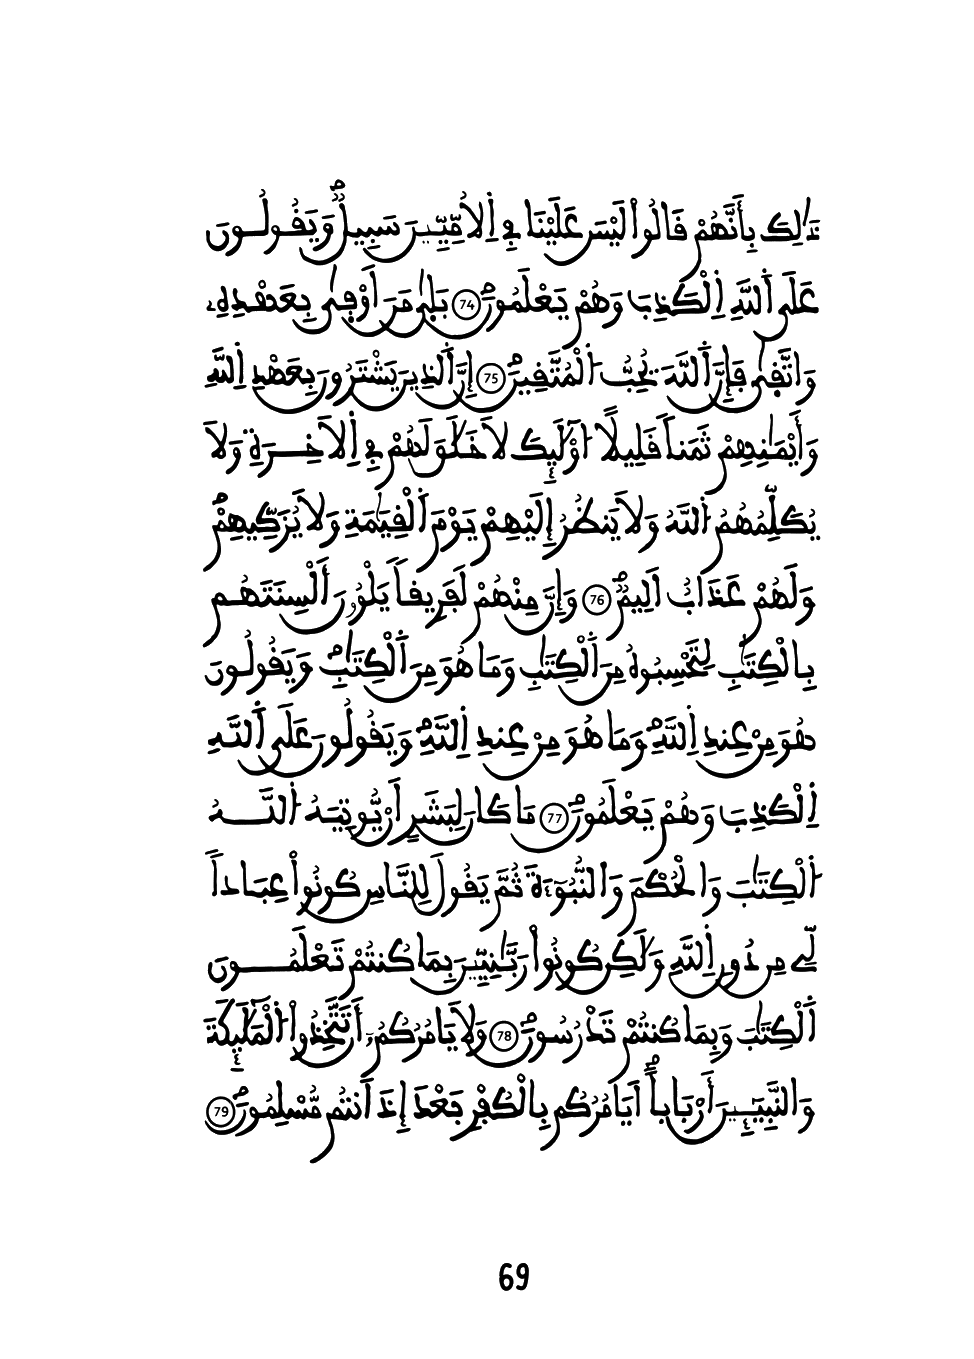 ذَٰلِكَ بِأَنَّهُمْ قَالُواْ لَيْسَ عَلَيْنَا فِي اِ۬لُامِّيِّـۧنَ سَبِيلٞۖ وَيَقُولُونَ
عَلَي اَ۬للَّهِ اِ۬لْكَذِبَ وَهُمْ يَعْلَمُونَۖ 74 بَل۪ىٰ مَنَ اَوْف۪ىٰ بِعَهْدِهِۦ
وَاتَّق۪ىٰ فَإِنَّ اَ۬للَّهَ يُحِبُّ اُ۬لْمُتَّقِينَۖ 75 إِنَّ اَ۬لذِينَ يَشْتَرُونَ بِعَهْدِ اِ۬للَّهِ
وَأَيْمَٰنِهِمْ ثَمَناٗ قَلِيلاً ا۟وْلَٰٓئِكَ لَا خَلَٰقَ لَهُمْ فِي اِ۬لَاخِرَةِ وَلَا
يُكَلِّمُهُمُ اُ۬للَّهُ وَلَا يَنظُرُ إِلَيْهِمْ يَوْمَ اَ۬لْقِيَٰمَةِ وَلَا يُزَكِّيهِمْۖ
وَلَهُمْ عَذَابٌ اَلِيمٞۖ 76 وَإِنَّ مِنْهُمْ لَفَرِيقاٗ يَلْوُۥنَ أَلْسِنَتَهُم
بِالْكِتَٰبِ لِتَحْسِبُوهُ مِنَ اَ۬لْكِتَٰبِ وَمَا هُوَ مِنَ اَ۬لْكِتَٰبِۖ وَيَقُولُونَ
هُوَ مِنْ عِندِ اِ۬للَّهِۖ وَمَا هُوَ مِنْ عِندِ اِ۬للَّهِۖ وَيَقُولُونَ عَلَي اَ۬للَّهِ
اِ۬لْكَذِبَ وَهُمْ يَعْلَمُونَۖ 77 مَا كَانَ لِبَشَرٍ اَنْ يُّوتِيَهُ اُ۬للَّهُ
اُ۬لْكِتَٰبَ وَالْحُكْمَ وَالنُّبُوٓءَةَ ثُمَّ يَقُولَ لِلنَّاسِ كُونُواْ عِبَاداٗ
لِّے مِن دُونِ اِ۬للَّهِ وَلَٰكِن كُونُواْ رَبَّٰنِيِّـۧنَ بِمَا كُنتُمْ تَعْلَمُونَ
اَ۬لْكِتَٰبَ وَبِمَا كُنتُمْ تَدْرُسُونَۖ 78 وَلَا يَامُرُكُمُۥٓ أَن تَتَّخِذُواْ اُ۬لْمَلَٰٓئِكَةَ
وَالنَّبِيٓـِٕۧنَ أَرْبَاباًۖ اَيَامُرُكُم بِالْكُفْرِ بَعْدَ إِذَ اَنتُم مُّسْلِمُونَۖ 79
69